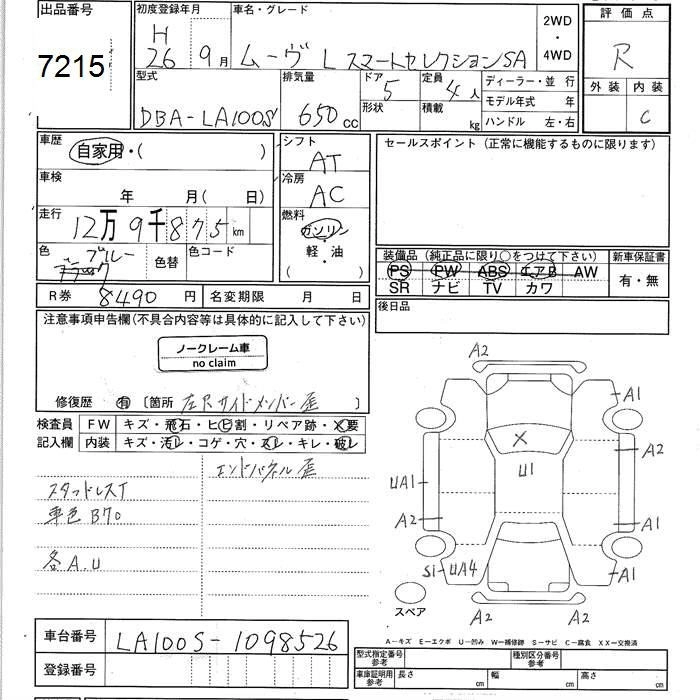 出品番号
7215
初度登録年月
H
26 9月
車名・グレード
ムーヴ L スマートセレクションSA
2WD
・
4WD
評価点
R
外装 内装
C
型式
DBA-LA100S
排気量
650 cc
ドア 5
形状
定員 4人
積載 kg
ディーラー・並行
モデル年式 年
ハンドル 左・右
車歴
自家用・( )
車検
年 月( 日)
走行
12万9千875km
色
ブルー
色替
色コード
シフト
AT
冷房
AC
燃料
ガソリン
・
軽・油
R券 8490円
名変期限 月 日
セールスポイント(正常に機能するものに限ります)
装備品(純正品に限り○をつけて下さい)
PS PW ABS エアB AW
SR ナビ TV カワ
新車保証書
有・無
後日品
注意事項申告欄(不具合内容等は具体的に記入して下さい)
ノークレーム車
no claim
修復歴 有 〔箇所 左Rサイドメンバー歪 〕
検査員
記入欄
FW キズ・飛石・ヒビ割・リペア跡・X要
内装 キズ・汚レ・コゲ・穴・スレ・キレ・破レ
エンドパネル歪
スタッドレスT
車色 B70
各A.U
A2
A1
A2
X
U1
UA1
A2
A1
Si-UA4
A1
スペア
A2
A2
A-キズ E-エクボ U-凹み W-補修跡 S-サビ C-腐食 XX-交換済
車台番号 LA100S-1098526
登録番号
型式指定番号
参考
種別区分番号
参考
車庫証明用
参考
長さ cm
幅 cm
高さ cm